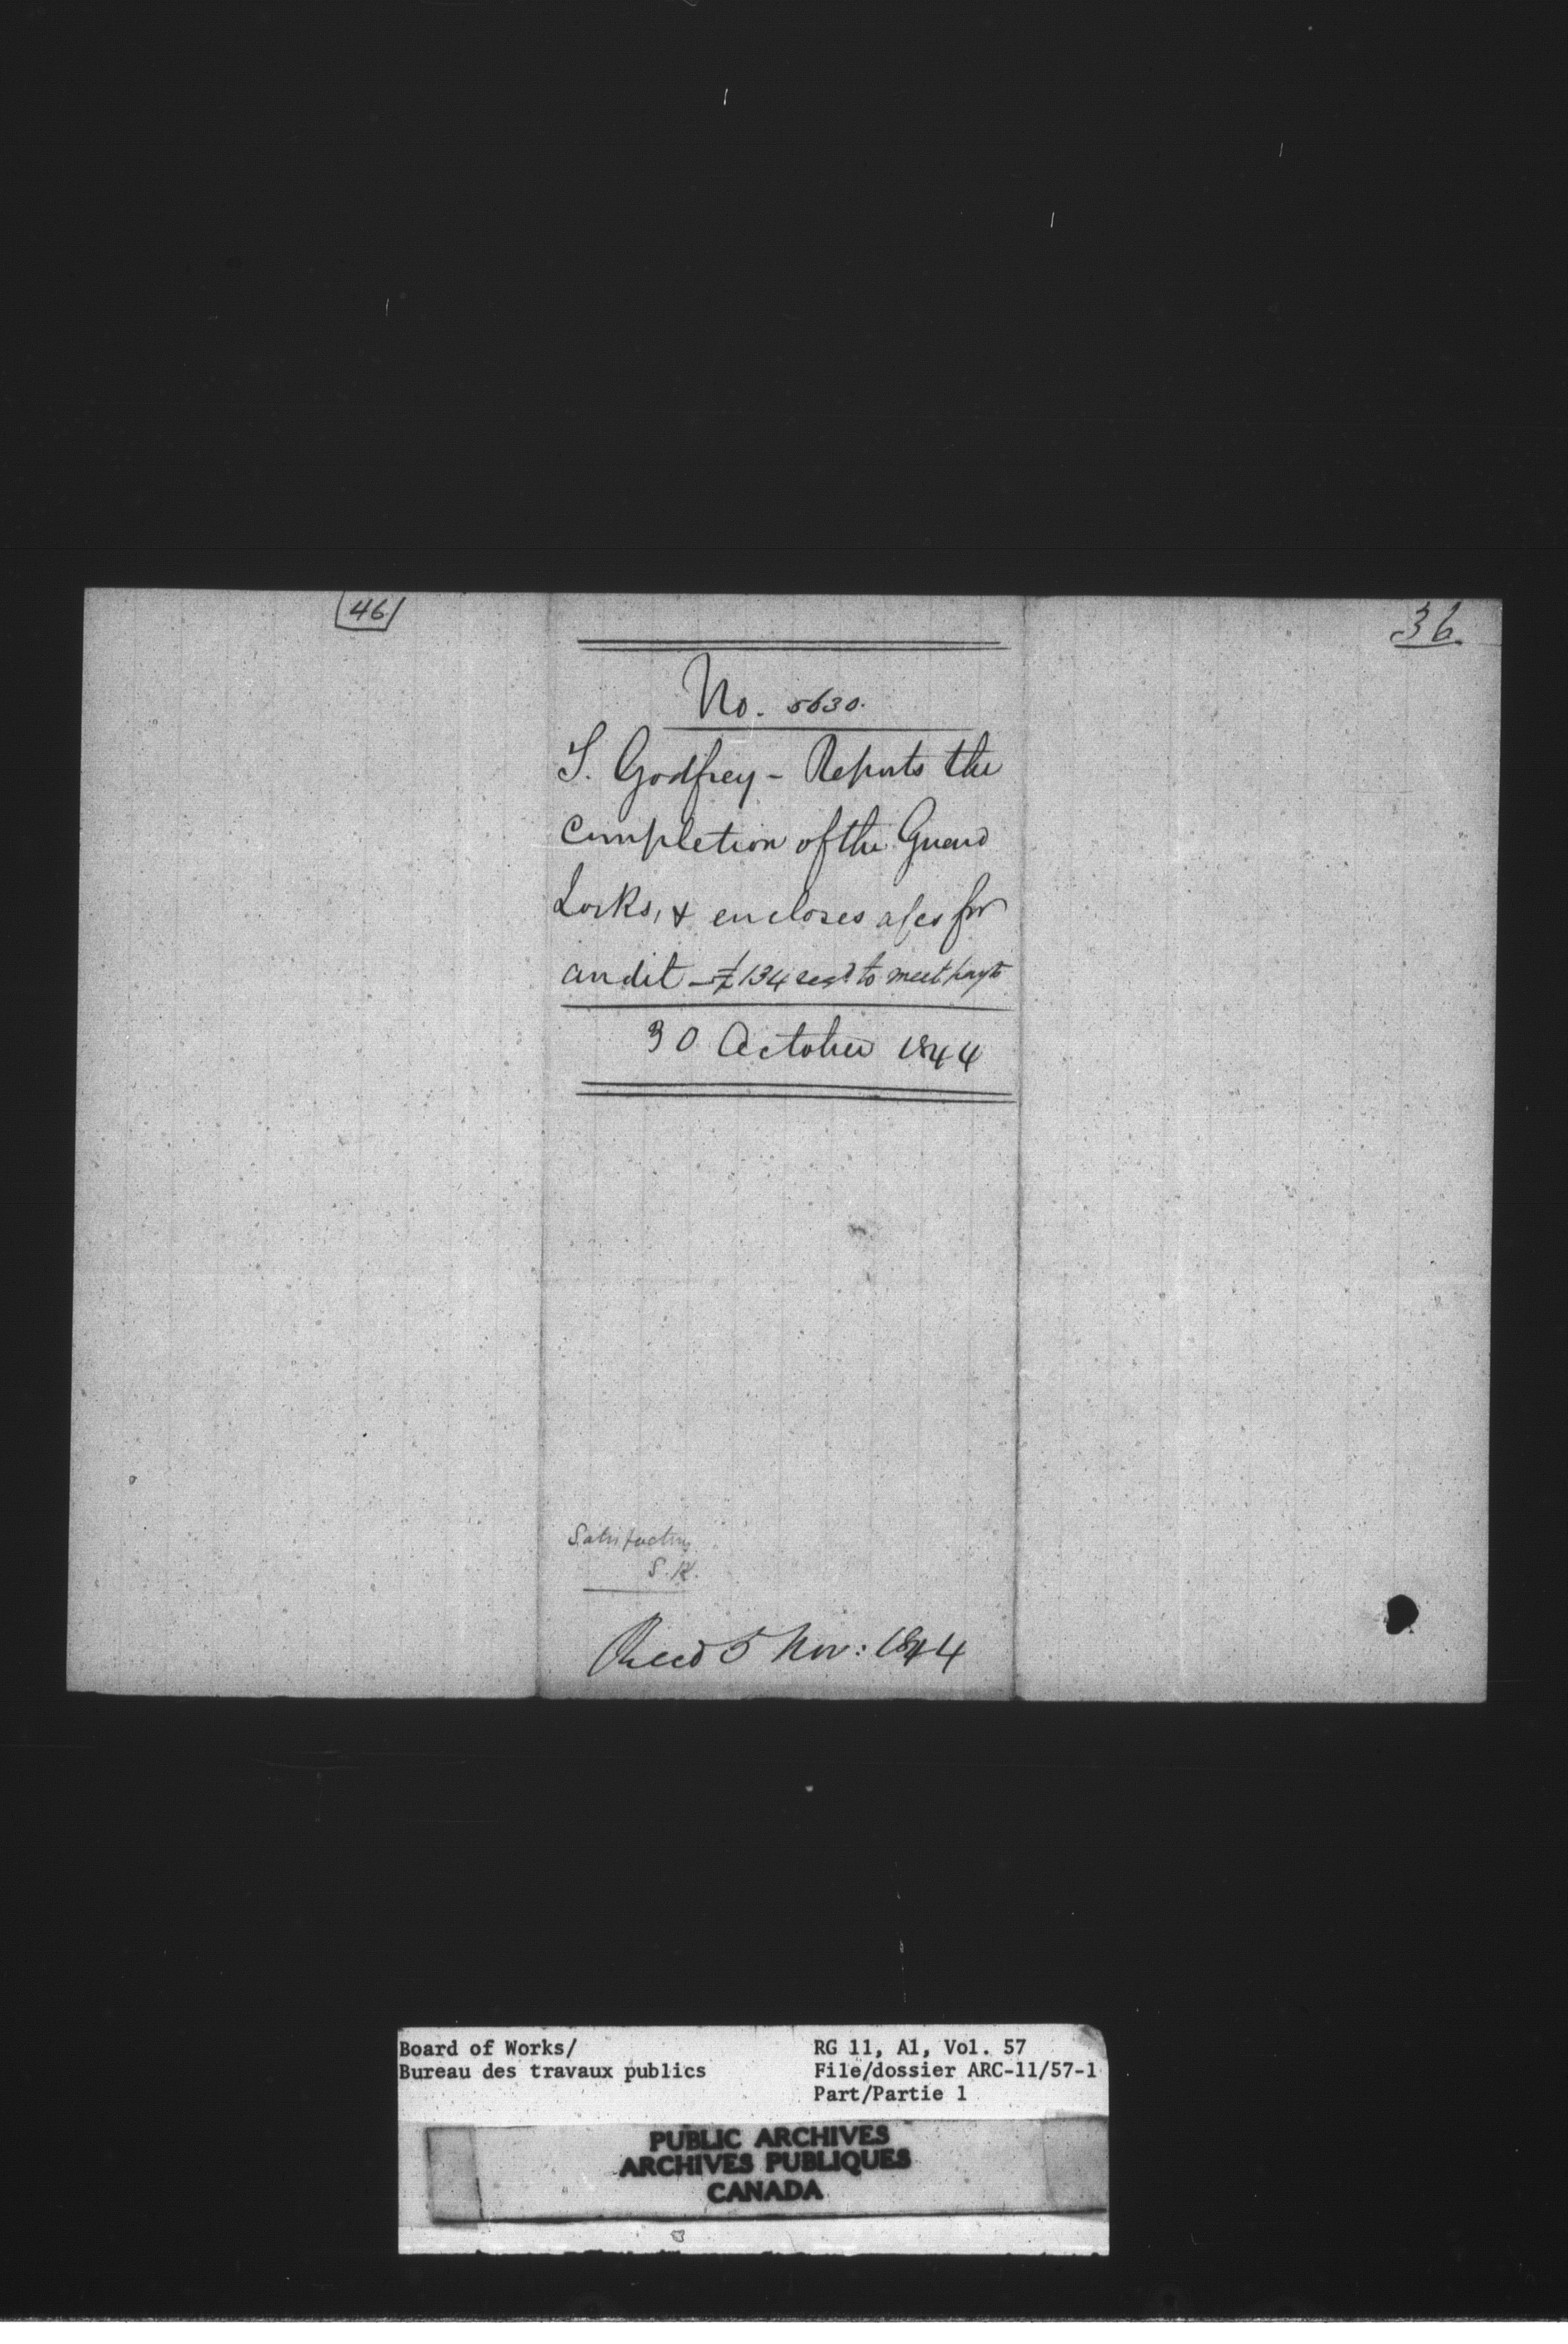 46
36
No. 5630.
S. Godfrey - Reports the
completion of the Guard
Locks, & encloses a/cs for
audit - £134 reqd to meet payts
30 October 1844
Satisfactory
S. K.
Recd 5 Nov: 1844
Board of Works/
Bureau des travaux publics
RG 11, A1, Vol. 57
File/dossier ARC-11/57-1
Part/Partie 1
PUBLIC ARCHIVES
ARCHIVES PUBLIQUES
CANADA